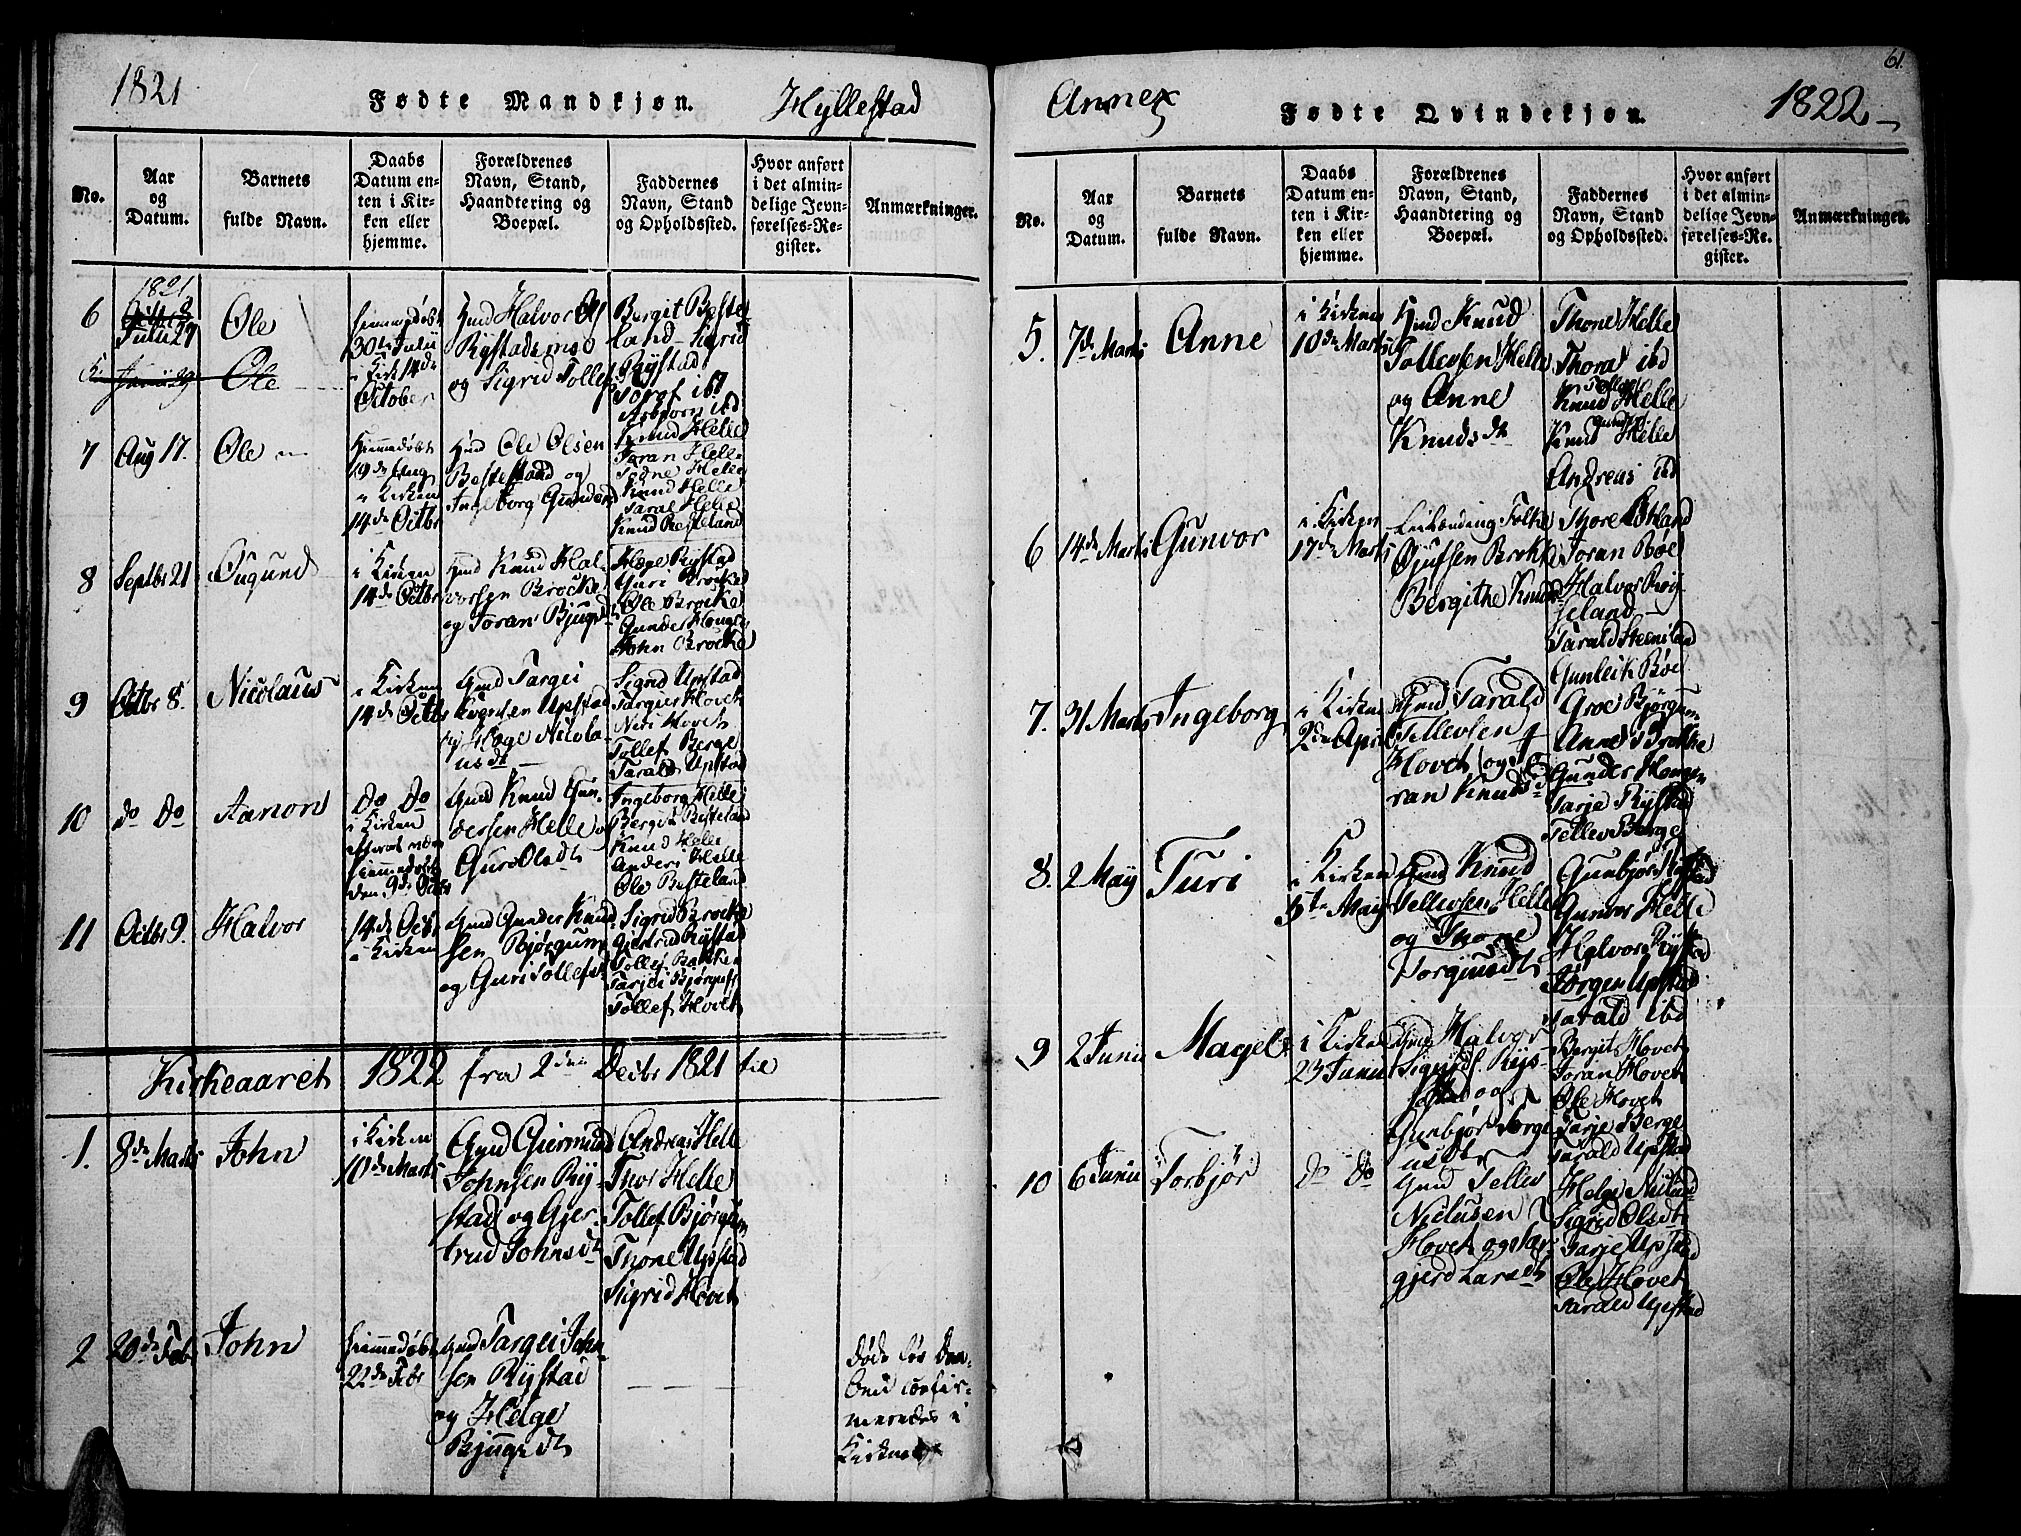 1821
Fødte Mandkjøn.
Hyllestad
No.
Aar
og
Datum.
Barnets
fulde Navn.
Daabs
Datum en-
ten i Kir-
ken eller
hjemme.
Forældrenes
Navn, Stand,
Haandtering og
Boepæl.
Faddernes
Navn, Stand
og Opholdssted.
Hvor anført
i det almin-
delige Jevn-
førelses-Re-
gister.
Anmærkninger.
6
1821
Julii 29
Ole
hiemmedøbt
30te Julii
i Kirk 14de
October
Gmd Halvor Ols
Rystad
og Sigrid Tollefs
Bergit Beste
land Sigrid
Rystad
Asbjørn ibd
Ole
7
Aug 17.
Ole
Hiemmedøbt
19de Aug
i Kirken
14de Octbr
Gmd Ole Olsen
Besteland og
Ingeborg Gunders
Knud Helle
Toran Helle
Knud Helle
Taral Helle
Knud Besteland
8
Septbr 21
Ougund
i Kirken
14de Octbr
Gmd Knud Hal-
vorsen Brocke
og Toran Bjugsd
Hæge Rystad
Guri Brocke
Ole Brocke
Gunder Houge
John Brocke
9
Octbr 8.
Nicolaus
i Kirken
14de Octbr
Gmd Targei
Evensen Upstad
og Hæge Nicola-
usdt
Sigrid Upstad
Targier Hovet
Hovet
Tollef Berge
Tarald Upstad
10
do do
Aanon
do do
i Kirken
hiemmedøbt
den 9de Octbr
Gmd Knud Gun-
dersen Helle og
Guro Olsdt
Ingeborg Helle
Bergit Besteland
Knud Helle
Anders Helle
Ole Besteland
11
Octbr 9.
Halvor
14de Octbr
i Kirken
Gmd Gunder Knud
sen Bjørgum
og Guri Tollefsd
Sigrid Brocke
Giertrud Rystad
Tollef Bakken
Tarjei Bjørgum
Tollef Hovet
Kirkeaaret 1822 fra 2den Decbr 1821 til
1.
8de Marts
John
i Kirken
10de Marts
Gmd Giermund
Johnsen Ry-
stad og Gjer-
trud Johnsdt
Andreas Helle
Thor Helle
Tollef Bjørgum
Thone Upstad
Sigrid Hovet
2
20de Feb
John
hiemmedøbt
22de Febr
Gmd Targei John
sen Rystad
og Helge
Bjugsdt
Døde før Daa-
ben confir-
meredes i
Kirken
61.
Annex
Fødte Qvindekjøn.
1822
No.
Aar
og
Datum.
Barnets
fulde Navn.
Daabs
Datum en-
ten i Kir-
ken eller
hjemme.
Forældrenes
Navn, Stand,
Haandtering og
Boepæl.
Faddernes
Navn, Stand
og Opholdssted.
Hvor anført
i det almin-
delige Jevn-
førelses-Re-
gister.
Anmærkninger.
5.
7de Marts
Anne
i Kirken
10de Marts
Gmd Knud
Tollevsen Helle
og Anne
Knudsdt
Thone Helle
Thora ibd
Knud Helle
Knud Helle
Andreas ibd
6
14de Marts
Gunvor
i Kirken
17de Marts
Folke
Brokke
Bergithe Knuds
Toran Bøe
Halvor Røy
seland
Tarald
Gunleik Bøe
7.
31 Marts
Ingeborg
i Kirken
2de April
Gmd Tarald
Tellevsen
Hovet og To
ran Knudsd
Groe Bjørgum
Anne Brokke
Gunder Hougen
Tarje Rystad
Tellev Berge
8.
2 Maij
Turi
i Kirken
5te Maij
Gmd Knud
Tellevsen Helle
og Thone
Torgiusdt
Gunbjør Rystad
Gunvor Helle
Halvor Rystad
Jørgen Upstad
Tarald ibd
9
2 Junii
Magele
i Kirken
23 Junii
Gmd Halvor
Sigurds. Rys-
stad og
Gunbjør Torge
usdt
Bergit Hovet
Toran Hovet
Ole Hovet
Tarje Berge
Tarald Upstad
10
6 Junii
Torbjør
do do
Gmd Tellev
Nielusen
Hovet og Tar
gjerd Larsdt
Helge
Sigrid Olsdt
Tarje Upstad
Ole Hovet
Tarald Upstad